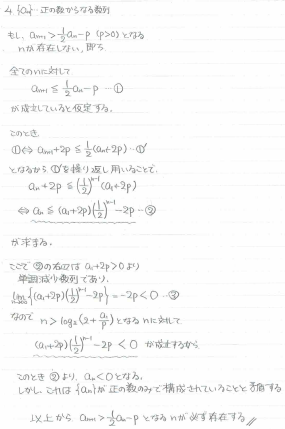 4. {an}…正の数からなる数列
もし、an+1 > 1/2 an - p (p>0) となる
nが存在しない、即ち
全てのnに対して
an+1 ≦ 1/2 an - p …①
が成立していると仮定する。
このとき
① ⇔ an+1 + 2p ≦ 1/2 (an + 2p) …①'
となるから ①'を繰り返し用いることで、
an + 2p ≦ (1/2)^n-1 (a1 + 2p)
⇔ an ≦ (a1 + 2p)(1/2)^n-1 - 2p …②
が求まる。
ここで ②の右辺は a1 + 2p > 0 より
単調減少数列であり、
lim n→∞ {(a1 + 2p)(1/2)^n-1 - 2p} = -2p < 0 …③
なので n > log2 (2 + a1/p) となるnに対して
(a1 + 2p)(1/2)^n-1 - 2p < 0 が成立するから
このとき ②より、an < 0 となる。
しかし、これは {an} が正の数のみで構成されていることと矛盾する
以上から an+1 > 1/2 an - p となるnが必ず存在する。//